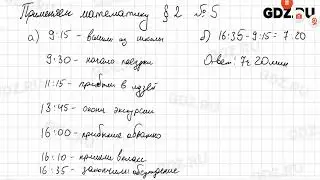 GDZ.RU
Применяем математику § 2 № 5
а) 9:15 - вышли из школы
б) 16:35 - 9:15 = 7:20
9:30 - начало поездки
Ответ: 7ч 20мин
11:15 - прибыли в музей
13:45 - оконч экскурсии
16:00 - прибытие обратно
16:10 - пришли в класс
16:35 - закончили обсуждение